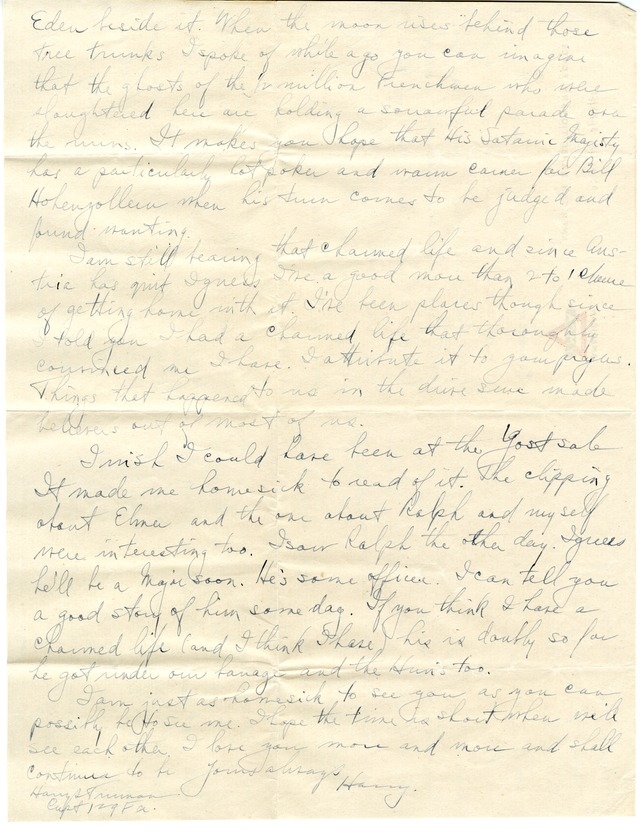 Eden beside it. When the moon rises behind those
tree trunks I spoke of while ago you can imagine
that the ghosts of the ½ million Frenchmen who were
slaughtered here are holding a sorrowful parade over
the ruins. It makes you hope that His Satanic Majisty
has a particularly hot poker and warm corner for Bill
Hohenzollern when his turn comes to be judged and
found wanting.
I am still bearing that charmed life and since Aus-
tria has quit I guess I've a good more than 2 to 1 chance
of getting home with it. I've been places though since
I told you I had a charmed life that thoroughly
convinced me I have. I attribute it to your prayers.
Things that happened to us in the drive sure made
believers out of most of us.
I wish I could have been at the Yost sale
It made me homesick to read of it. The clipping
about Elmer and the one about Ralph and myself
were interesting too. I saw Ralph the other day. I guess
he'll be a Major soon. He's some officer. I can tell you
a good story of him some day. If you think I have a
charmed life (and I think I have) his is doubly so for
he got under our barrage and the Huns too.
I am just as homesick to see you as you can
possibly be to see me. I hope the time is short when we'll
see each other. I love you more and more and shall
continue to be Yours always
Harry.
Harry S Truman
Capt 129 F.A.